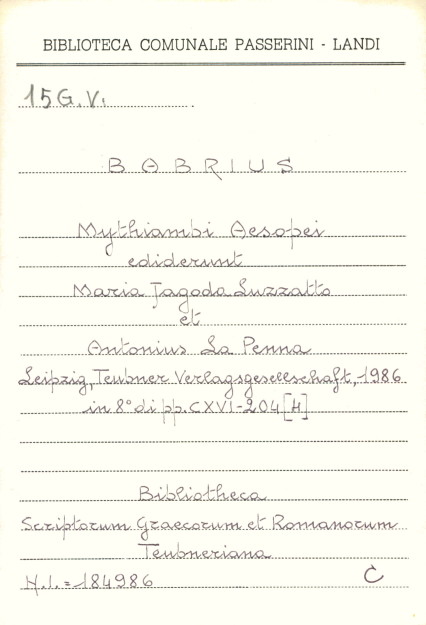 BIBLIOTECA COMUNALE PASSERINI - LANDI
15 G. V.
BABRIUS
Mythiambi Aesopei
ediderunt
Maria Jagoda Luzzatto
et
Antonius La Penna
Leipzig, Teubner Verlagsgesellschaft, 1986
in 8° di pp. CXVI-204 [4]
Bibliotheca
Scriptorum Graecorum et Romanorum
Teubneriana
N.I. = 184986
C